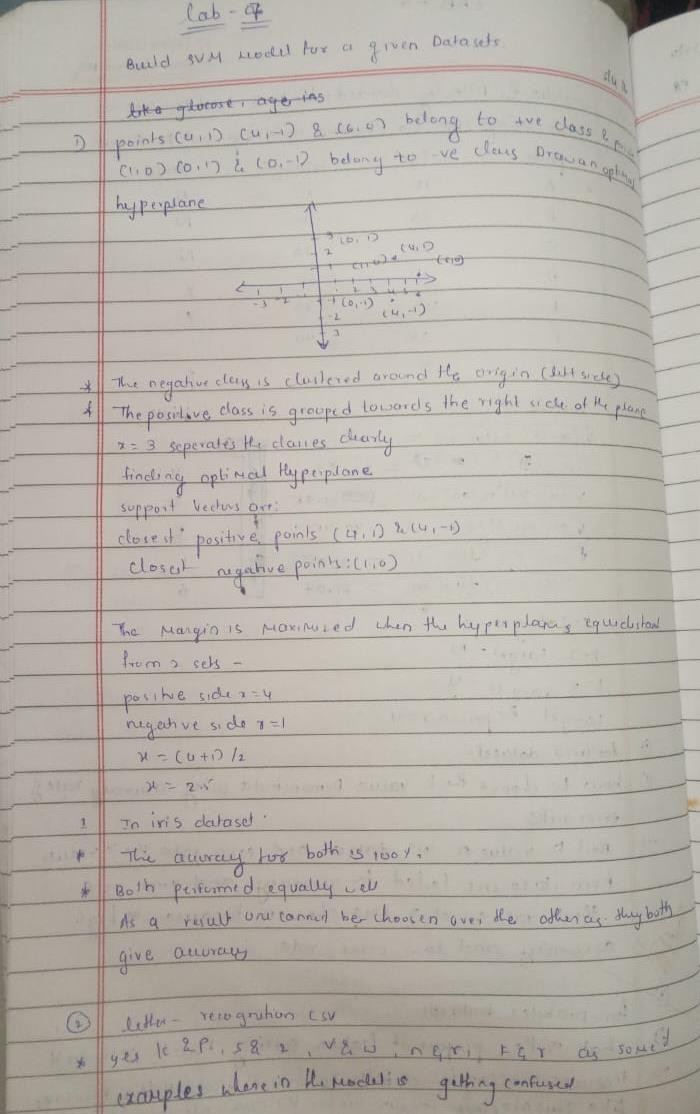 Lab - 7
Build SVM Model for a given Datasets
like glucose, age ins
1) points (4,1) (4,-1) & (6,0) belong to +ve class &
(1,0) (0,1) & (0,-1) belong to -ve class Draw an optimal
hyperplane
3 (0,1)
2 (4,1)
1 (1,0) (6,0)
-3 -2 1 2 3 4 5 6
-1 (0,-1)
-2 (4,-1)
3
* The negative class is clustered around the origin (left side)
* The positive class is grouped towards the right side of the plane
x = 3 seperates the classes clearly
finding optimal Hyperplane
support vectors are:
closest positive points (4,1) & (4,-1)
closest negative points: (1,0)
The Margin is Maximized when the hyperplane is equidistant
from 2 sets -
positive side x=4
negative side x=1
x = (4+1)/2
x = 2.5
1 In iris dataset
* The accuracy for both is 100%.
* Both performed equally well
As a result one cannot be choosen over the other as they both
give accuracy
2 letter - recognition CSV
* yes K & P, S & 2, V & W, n & r, F & r as some
examples where in the model is getting confused